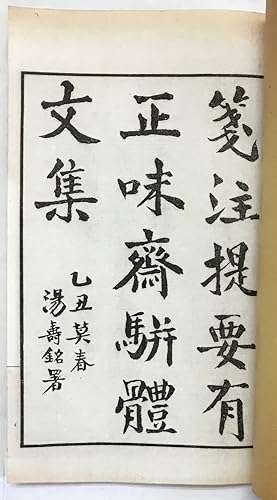 箋注提要有
正味齋駢體
文集
乙丑莫春
湯壽銘署